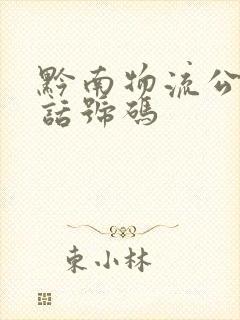 黔南物流公
話號碼
東小林